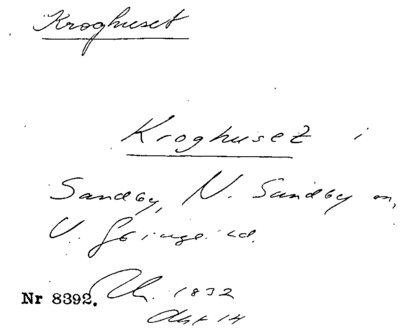 Kroghuset
Kroghuset i
Sandby, N. Sandby sn,
V. Göinge hd.
Nr 8392. 1832
Akt 14